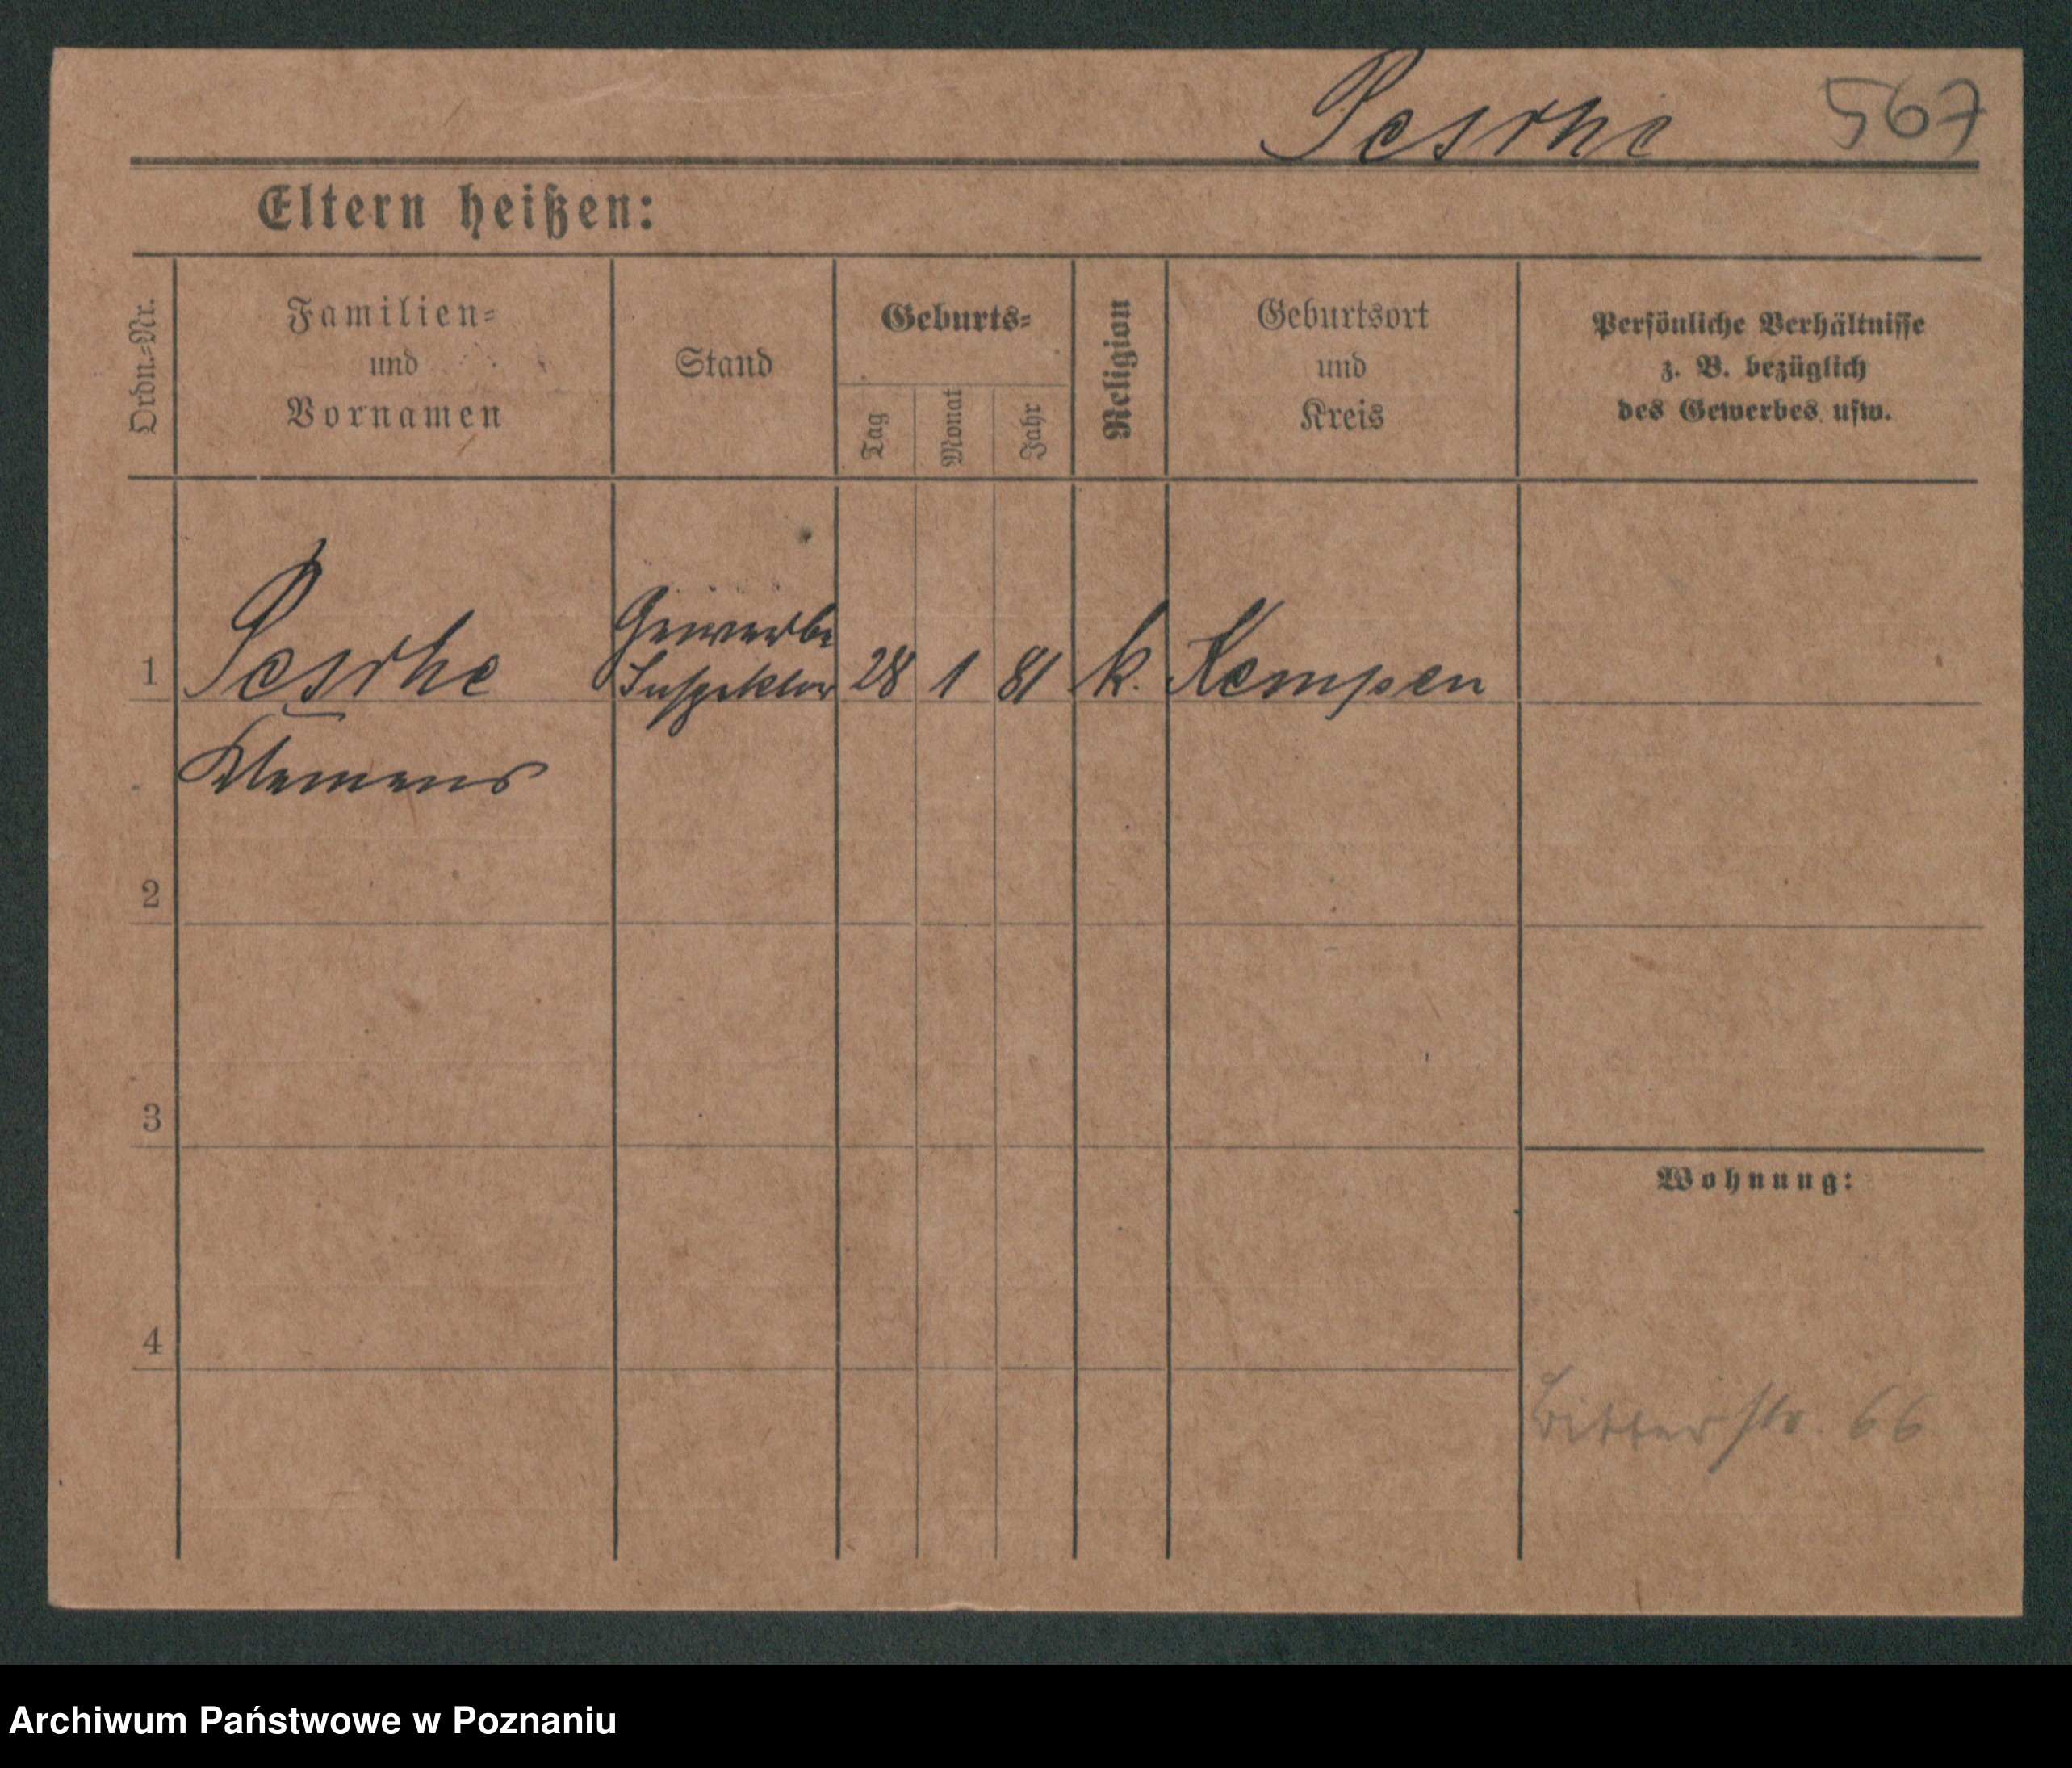 Pesche 567
Eltern heißen:
Ordn.-Nr.
Familien-
und
Vornamen
Stand
Geburts-
Tag
Monat
Jahr
Religion
Geburtsort
und
Kreis
Persönliche Verhältnisse
z. B. bezüglich
des Gewerbes usw.
1 Pesche Gewerbe
Inspektor 28 1 81 k. Kempen
Klemens
2
3
Wohnung:
4
Ritterstr. 66
Archiwum Państwowe w Poznaniu